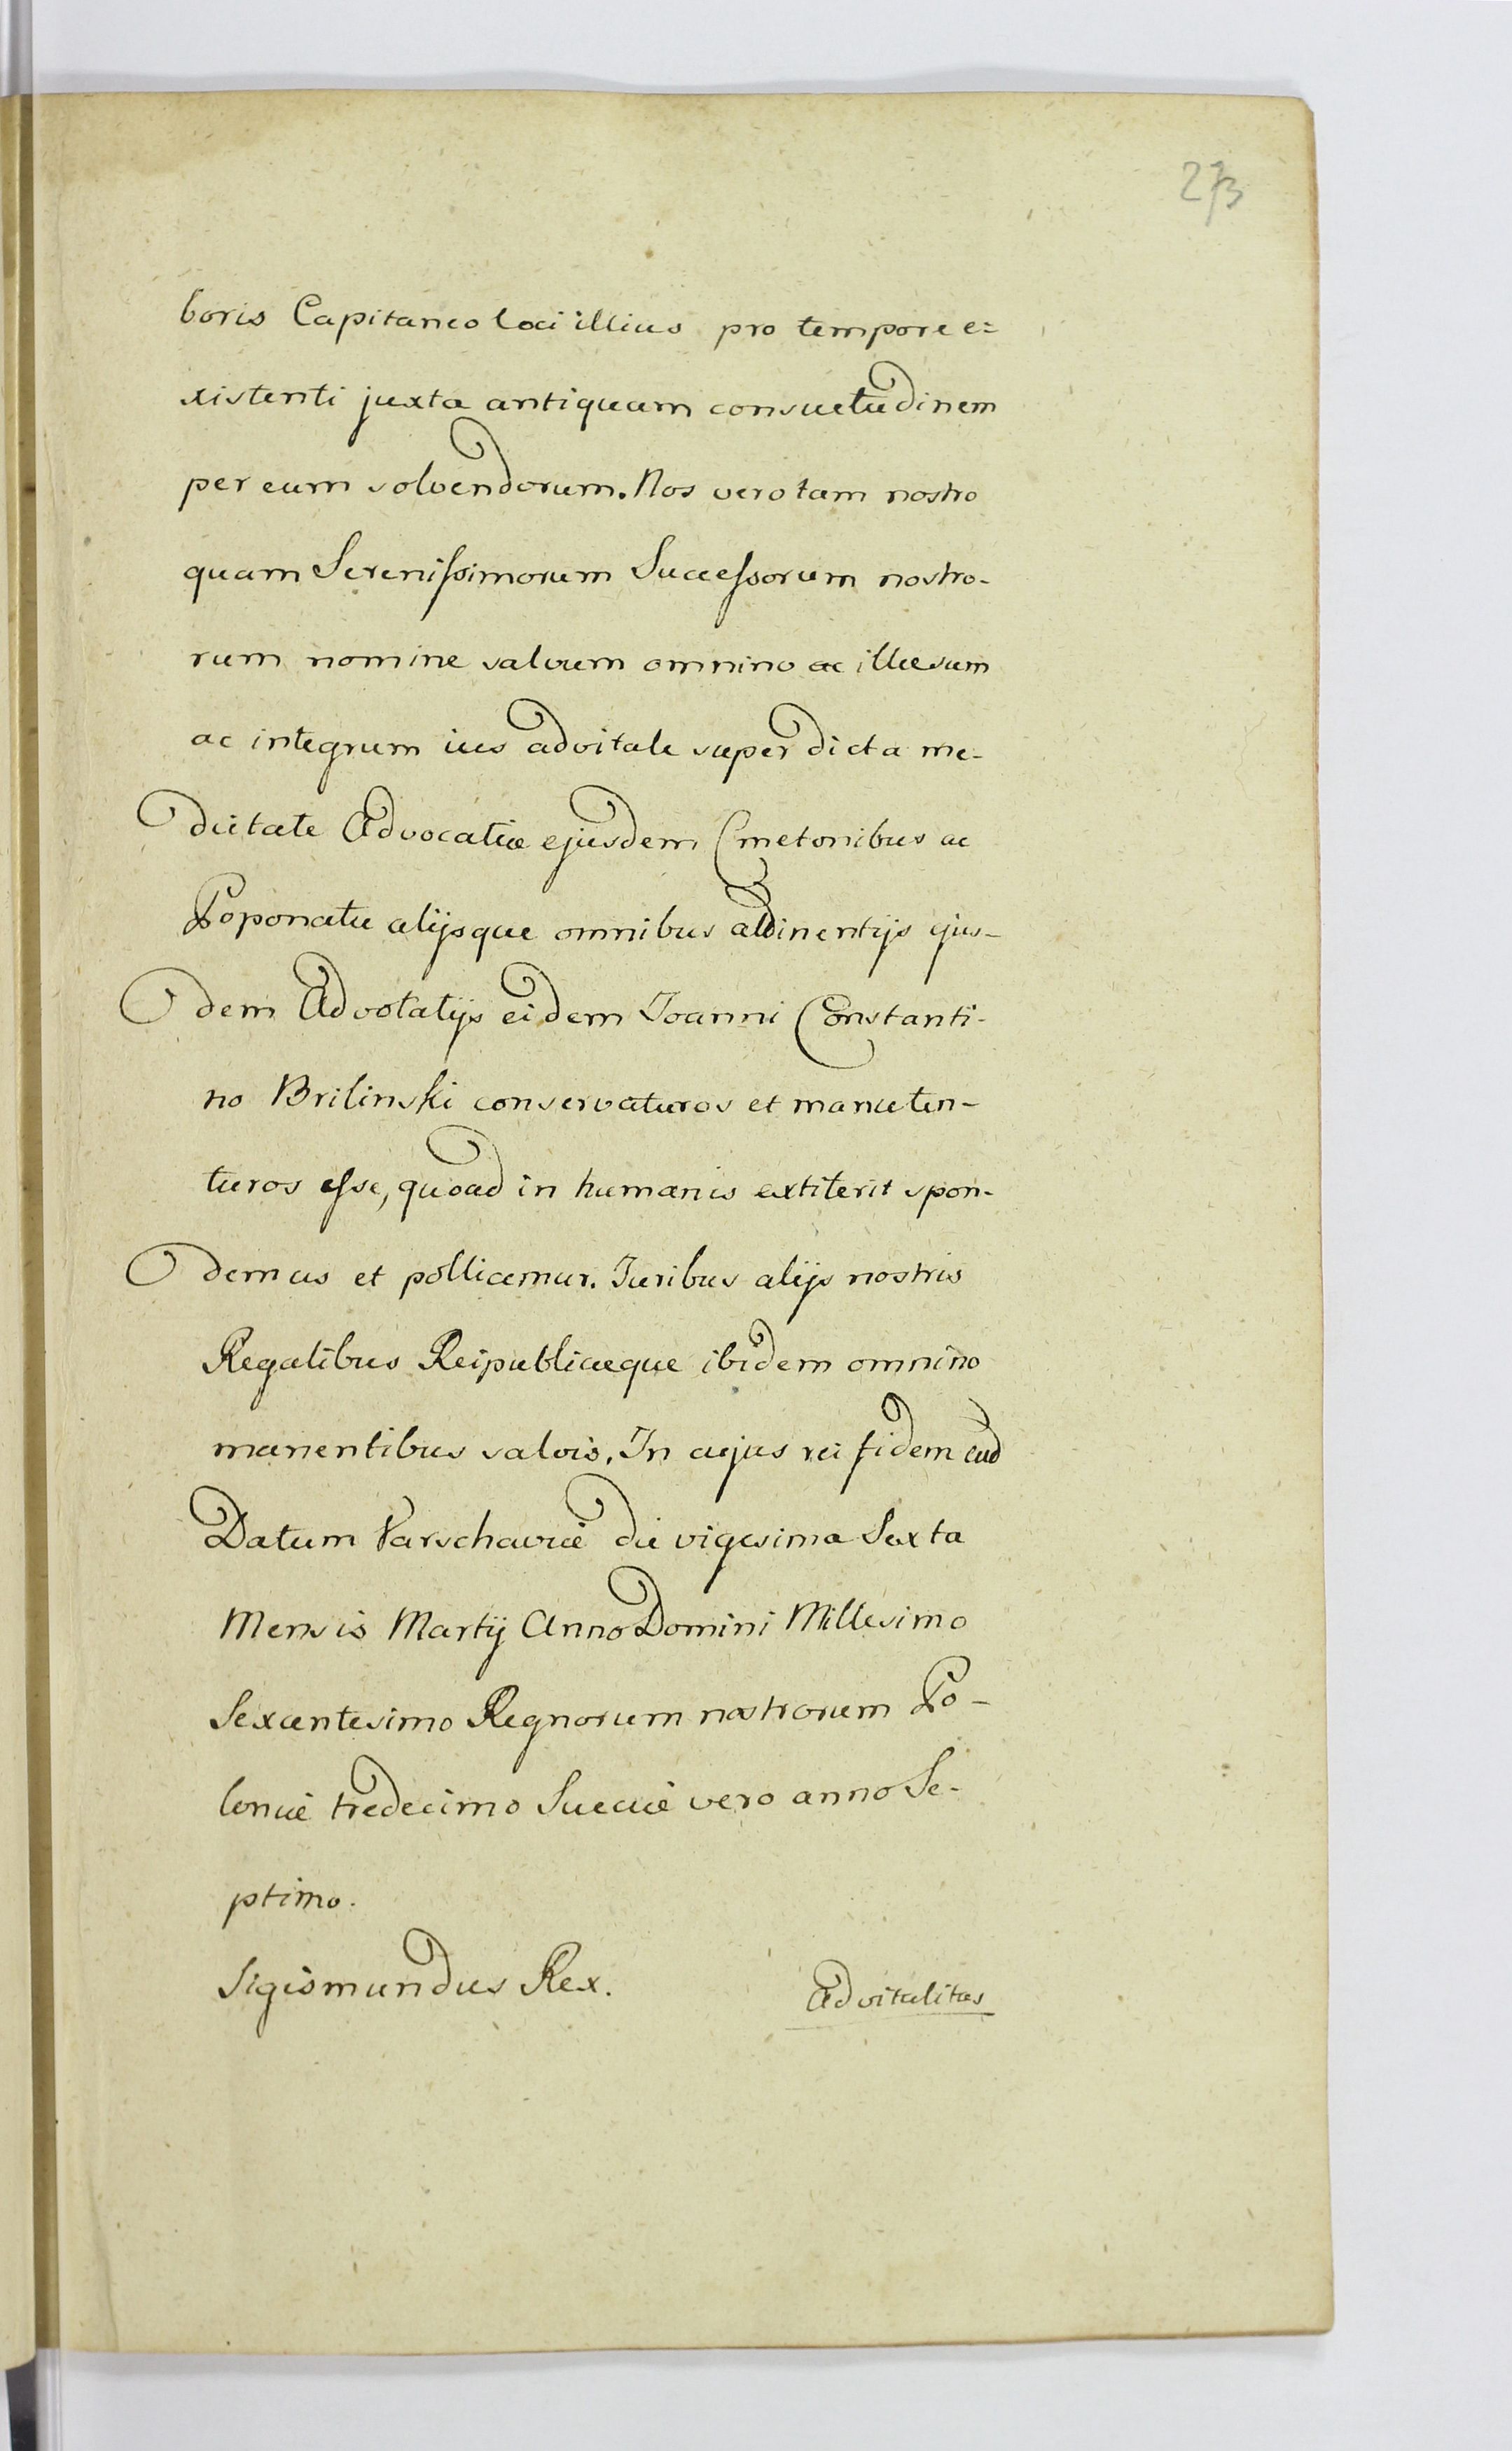 273
boris Capitaneo loci illius pro tempore e=
xistenti juxta antiquam consuetudinem
per eum solvendorum. Nos vero tam nostro
quam Serenissimorum Successorum nostro-
rum nomine salvum omnino ac illæsum
ac integrum ius advitale super dicta me-
dietate Advocatiæ ejusdem Cmetonibus ac
Poponatu alijsque omnibus attinentijs ejus-
dem Advocatijs eidem Joanni Constanti-
no Brilinski conservaturos et manuten-
turos esse, quoad in humanis extiterit spon-
demus et pollicemur. Juribus alijs nostris
Regalibus Reipublicæque ibidem omnino
manentibus salvis. In cujus rei fidem
Datum Varschaviæ die vigesima Sexta
Mensis Martij Anno Domini Millesimo
Sexcentesimo Regnorum nostrorum Po-
loniæ tredecimo Sueciæ vero anno Se-
ptimo.
Sigismundus Rex. Advitalitas